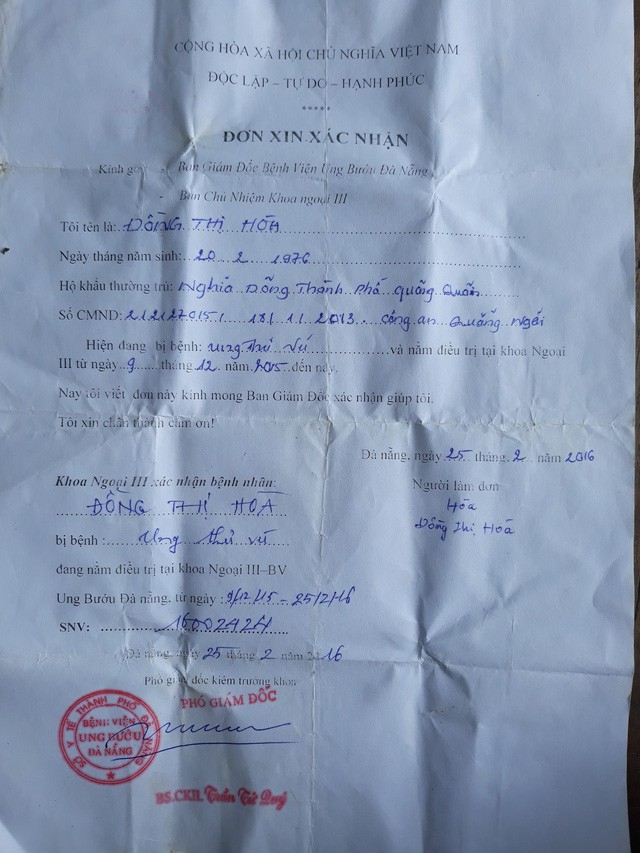 CỘNG HÒA XÃ HỘI CHỦ NGHĨA VIỆT NAM
ĐỘC LẬP – TỰ DO – HẠNH PHÚC
*****
ĐƠN XIN XÁC NHẬN
Kính gửi: - Ban Giám Đốc Bệnh Viện Ung Bướu Đà Nẵng
- Ban Chủ Nhiệm Khoa ngoại III
Tôi tên là: ĐỒNG THỊ HÒA
Ngày tháng năm sinh: 20 2 1976
Hộ khẩu thường trú: Nghĩa Dõng Thành Phố Quãng
Số CMND: 13/11/2013 công an Quãng Ngãi
Hiện đang bị bệnh: ung thử vú và nằm điều trị tại khoa Ngoại
III từ ngày 9 tháng 12 năm 2015 đến nay.
Nay tôi viết đơn này kính mong Ban Giám Đốc xác nhận giúp tôi.
Tôi xin chân thành cảm ơn!
Đà nẵng, ngày 25 tháng 2 năm 2016
Khoa Ngoại III xác nhận bệnh nhân: Người làm đơn
ĐỒNG THỊ HÒA Hóa
Đồng Thị Hoá
bị bệnh: Ung thử vú
đang nằm điều trị tại khoa Ngoại III–BV
Ung Bướu Đà nẵng, từ ngày: 9/12/15 – 25/2/16
SNV: 16002424
Đà nẵng, ngày 25 tháng 2 năm 2016
Phó giám đốc kiêm trưởng khoa
PHÓ GIÁM ĐỐC
SỞ Y TẾ THÀNH PHỐ ĐÀ NẴNG
BỆNH VIỆN
UNG BƯỚU
ĐÀ NẴNG
BS.CKII. Trần Tứ Quý